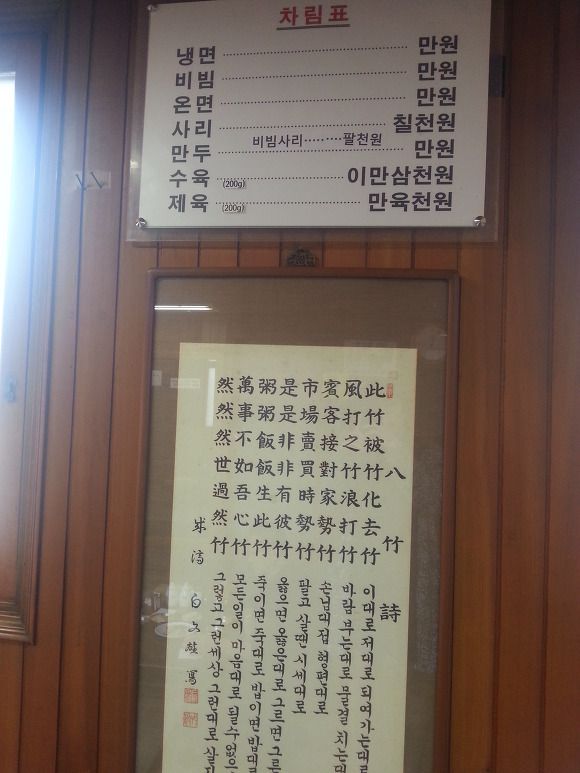 차림표
냉면 ........................ 만원
비빔 ........................ 만원
온면 ........................ 만원
사리 ........................ 칠천원
비빔사리.........팔천원
만두 ........................ 만원
수육 (200g) ........................ 이만삼천원
제육 (200g) ........................ 만육천원
八竹詩
此竹被竹化去竹 이대로 저대로 되여가는대로
風打之竹浪打竹 바람 부는대로 물결 치는대
賓客接對家勢竹 손님대접 형편대로
市場賣買時勢竹 팔고 살땐 시세대로
是是非非有彼竹 옳으면 옳은대로 그르면 그른
粥粥飯飯生此竹 죽이면 죽대로 밥이면 밥대로
萬事不如吾心竹 모든일이 마음대로 될수 없으
然然然世過然竹 그렇고 그런세상 그런대로 살
白 寫